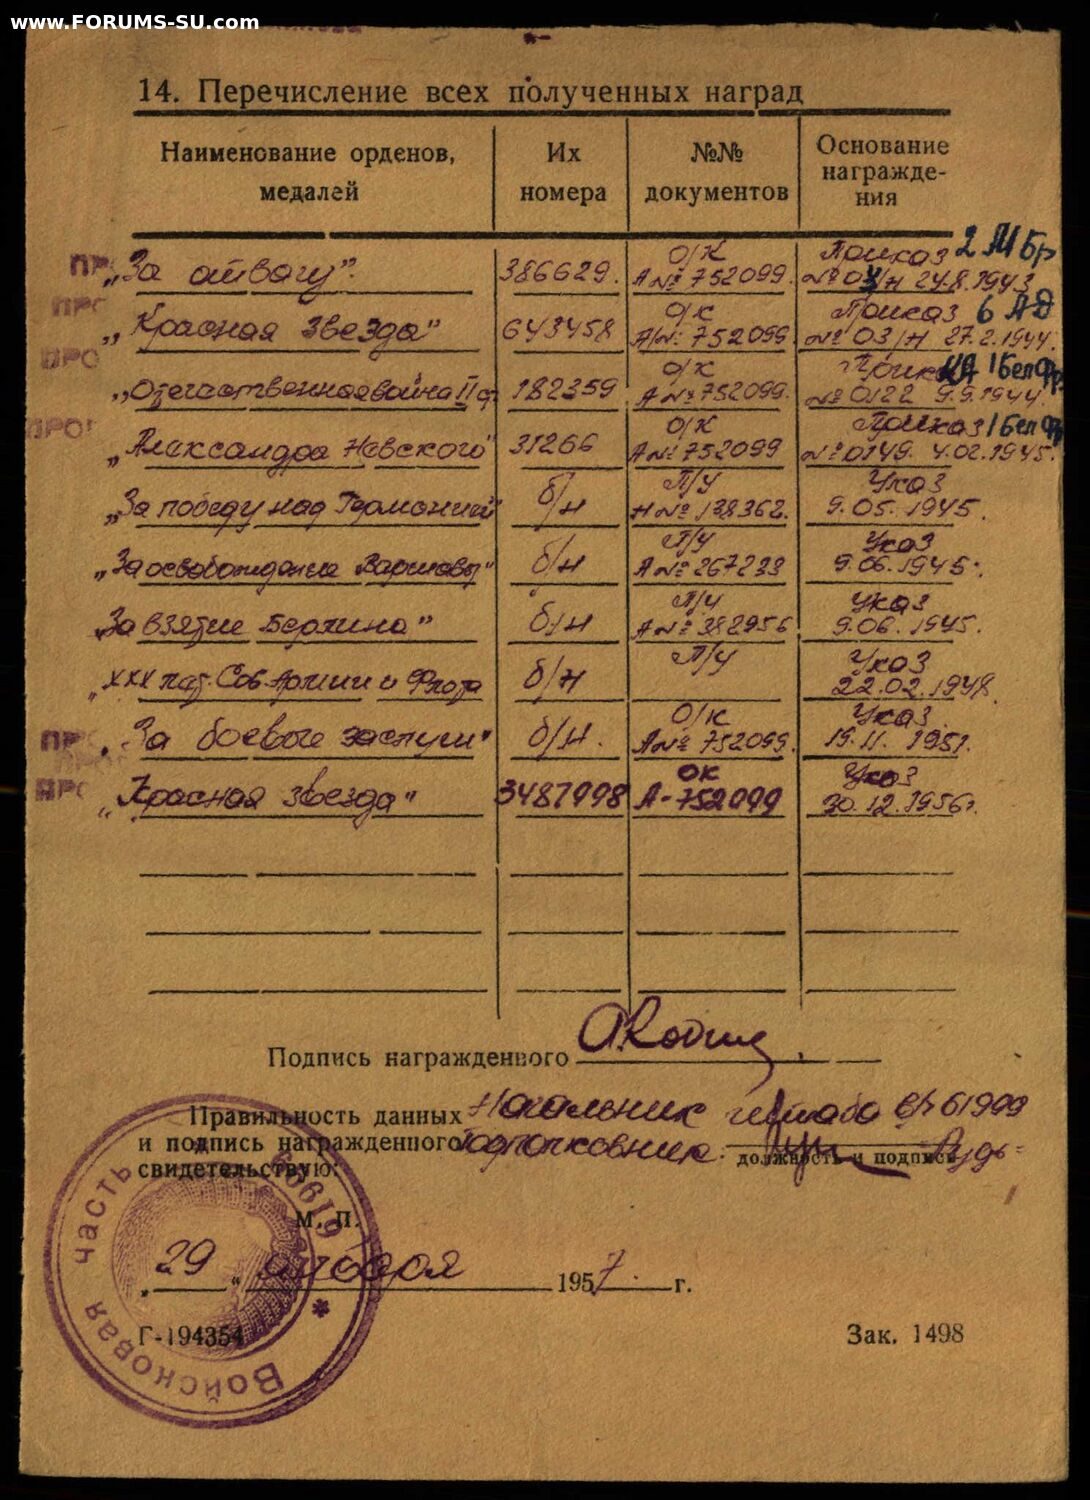 www.FORUMS-SU.com
14. Перечисление всех полученных наград
Наименование орденов, медалей
Их номера
№№ документов
Основание награжде-ния
ПР „За отвагу". 386629. О/К А№ 752099. Приказ 2 МБр №04/н 24.8.1943
ПРО „Красная Звезда" 643458 О/К А/№: 752099 Приказ 6 АД №03/н 27.2.1944.
ПРО „Отечественная война II ст 182359 О/К А№ 752099. Приказ 1 Бел Фр №0122 9.9.1944.
ПРОВ „Александра Невского" 31266 О/К А№ 752099 Приказ 1 Бел Фр №0149. 4.02.1945.
„За победу над Германией" б/н П/У Н№ 138362. Указ 9.05.1945.
„За освобождение Варшавы" б/н П/У А№ 267233 Указ 9.06.1945.
„За взятие Берлина" б/н П/У А№ 382956 Указ 9.06.1945.
„XXX лет. Сов. Армии и Флота б/н П/У Указ 22.02.1948.
ПРО „За боевые заслуги" б/н. О/К А№ 752099. Указ 19.11.1951.
ПРО „Красная звезда" 3487998 ОК А-752099 Указ 30.12.1956г.
Подпись награжденного
Правильность данных Начальник штаба в/ч 61999
и подпись награжденного подполковник
свидетельствую: должность и подпись
М. П.
„29" октября 1957. г.
Г-194354
Зак. 1498
Войсковая часть 61999 *